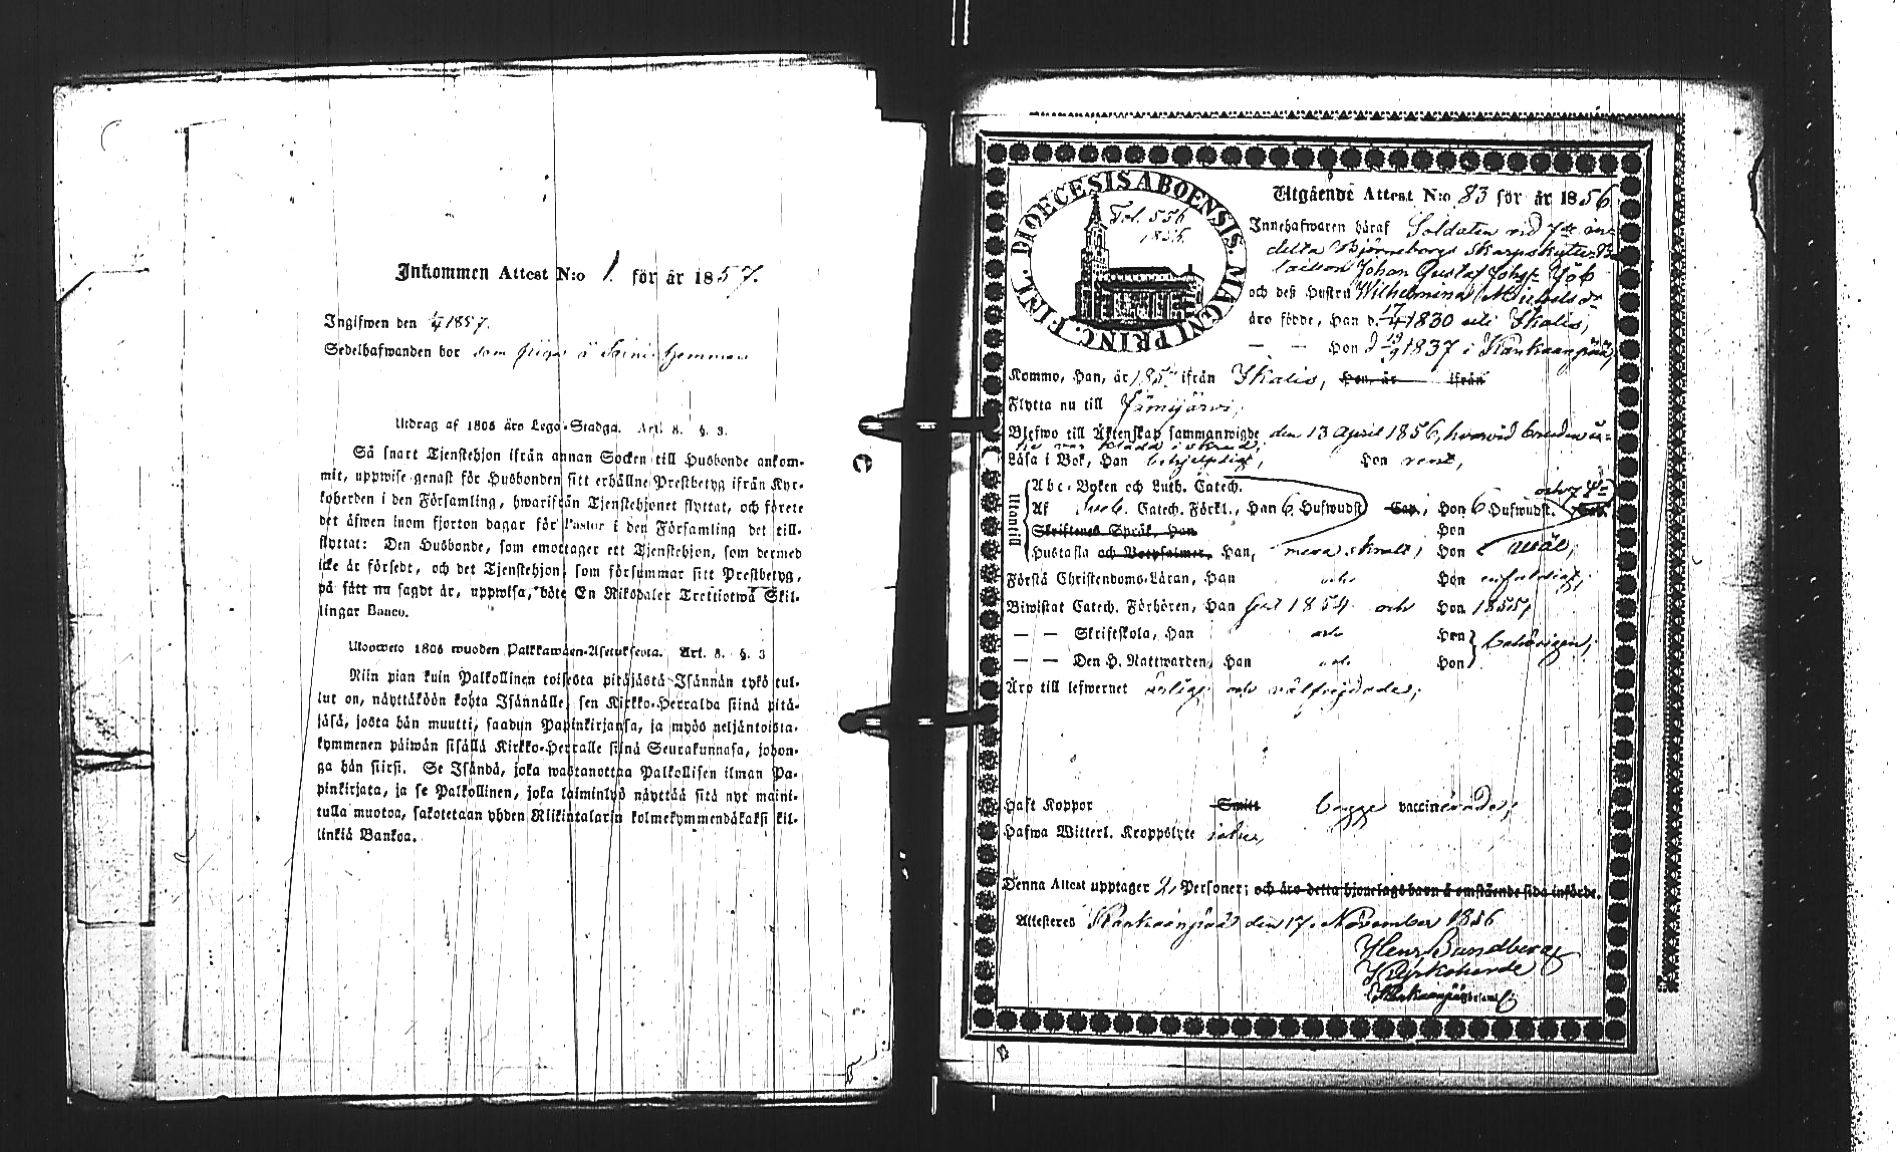 Inkommen Attest N:o 1. för år 1857.
Ingifwen den 1857.
Sedelhafwanden bor som piga å hemman
Utdrag af 1805 års Lego-Stadga. Art. 8. §. 3.
Så snart Tjenstehjon ifrån annan Socken till Husbonde ankom-
mit, uppwise genast för Husbonden sitt erhållne Prestbetyg ifrån Kyr-
koherden i den Församling, hwarifrån Tjenstehjonet flyttat, och förete
det äfwen inom fjorton dagar för Pastor i den Församling det till-
flyttat: Den Husbonde, som emottager ett Tjenstehjon, som dermed
icke är försedt, och det Tjenstehjon, som försummar sitt Prestbetyg,
på sätt nu sagdt är, uppwisa, böte En Riksdaler Trettiotwå Skil-
lingar Banco.
Ulosweto 1805 wuoden Palkkawäen-Asetuksesta. Art. 8. §. 3
Niin pian kuin Palkollinen toisesta pitäjästä Isännän tykö tul-
lut on, näyttäköön kohta Isännälle, sen Kirkko-Herralda siinä pitä-
jäsä, josta hän muutti, saadun Papinkirjansa, ja myös neljäntoista-
kymmenen päiwän sisällä Kirkko-Herralle siinä Seurakunnasa, johon-
ga hän siirsi. Se Isändä, joka wastanottaa Palkollisen ilman Pa-
pinkirjata, ja se Palkollinen, joka laiminlyö näyttää sitä nyt maini-
tulla muotoa, sakotetaan yhden Riikintalarin kolmekymmendäkaksi kil-
linkiä Bankoa.
DIOECESIS ABOENSIS. MAGNI PRINC. FINL.
Fol. 556
1856.
Utgående Attest N:o 83 för år 1856
Innehafwaren häraf Soldaten vid 7de in-
delta Björneborgs Skarpskytte Ba
taillon Johan Gustaf Johsn
och dess Hustru Wilhelmina Michelsdr
äro födde, Han d. 17/4 1830 uti Ikalis,
— — Hon d 19/9 1837 i Kankaanpää,
Komme, Han, år 185 ifrån Ikalis, Hon, år ifrån
Flytta nu till Jämijärvi,
Blefwo till Äktenskap sammanwigde den 13 April 1856, hvarvid bruden
Läsa i Bok, Han behjelpligt, Hon rent,
Utantill
Abc-Boken och Luth. Catech.
Af Sveb. Catech. Förkl., Han 6 Hufwudst Cap., Hon 6 Hufwudst. Cap.
Skriftenes Språk, Han Hon
Hustafla och Botpsalmer, Han, Hon väl,
Förstå Christendoms-Läran, Han och Hon enfaldigt,
Biwistat Catech. Förhören, Han 1854 och Hon 1855,
— — Skriftskola, Han och Hon behörigen,
— — Den H. Nattwarden, Han och Hon
Äro till lefwernet ärlige och välfrejdade,
Haft Koppor Smitt begge vaccinerade,
Hafwa Witterl. Kroppslyte
Denna Attest upptager 2, Personer; och äro detta hjonelags barn å omstående sida införde.
Attesteras Kankaanpää den 17. November 1856
Kyrkoherde